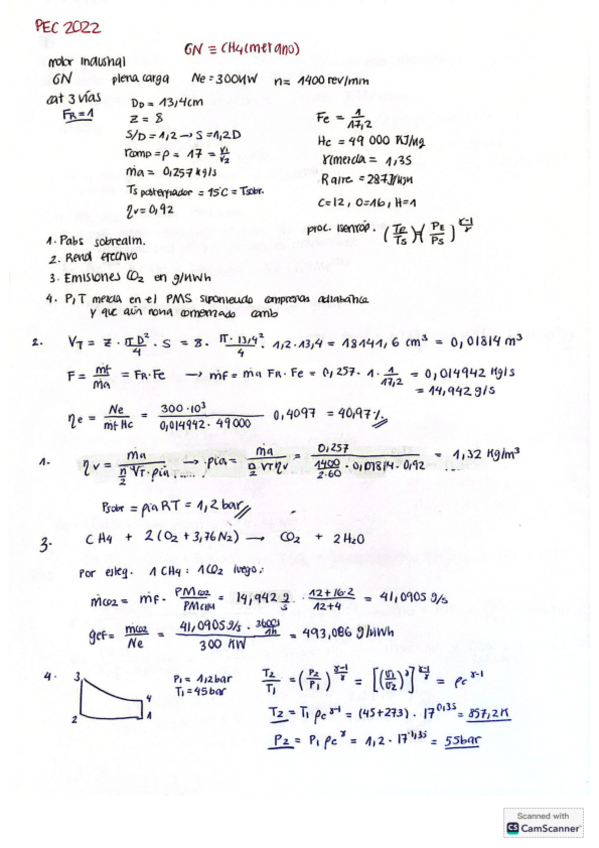 PEC 2022
GN ≡ CH4 (metano)
motor industrial
GN plena carga Ne = 300kW n = 1400 rev/min
cat 3 vías
FR = 1
DP = 13,4cm
Z = 8
S/D = 1,2 → S = 1,2D
rcomp = ρ = 17 = V1/V2
ṁa = 0,257 kg/s
Ts postenfriador = 45°C = Tsobr.
ηv = 0,92
Fe = 1/17,2
Hc = 49 000 KJ/kg
γmezcla = 1,35
R aire = 287 J/kgK
C=12, O=16, H=1
proc. isentróp. (TE/TS)=(PE/PS)^(γ-1/γ)
1. Pabs sobrealm.
2. Rend efectivo
3. Emisiones CO2 en g/kWh
4. P, T mezcla en el PMS suponiendo compresión adiabática
y que aún no ha comenzado comb
2. VT = Z · πD²/4 · S = 8 · π·13,4²/4 · 1,2·13,4 = 18141,6 cm³ = 0,01814 m³
F = ṁf/ṁa = FR·Fe → ṁf = ṁa FR·Fe = 0,257 · 1 · 1/17,2 = 0,014942 Kg/s
= 14,942 g/s
ηe = Ne/ṁf Hc = 300·10³/0,014942·49000 0,4097 = 40,97%
1. ηv = ṁa/(n/2 VT·ρia) → ρia = ṁa/(n/2 VT ηv) = 0,257/(1400/2·60 · 0,01814 · 0,92) = 1,32 Kg/m³
Psobr = ρia RT = 1,2 bar
3. CH4 + 2(O2 + 3,76N2) → CO2 + 2H2O
Por esteq. 1CH4 : 1CO2 luego:
ṁCO2 = ṁf · PMCO2/PMCH4 = 14,942 g/s · 12+16·2/12+4 = 41,0905 g/s
gef = ṁCO2/Ne = 41,0905 g/s · 3600s/1h / 300 KW = 493,086 g/kWh
4. 3 4 2 1
P1 = 1,2bar
T1 = 45bar
T2/T1 = (P2/P1)^(γ-1/γ) = [(V1/V2)^γ]^(γ-1/γ) = ρc^γ-1
T2 = T1 ρc^γ-1 = (45+273) · 17^0,35 = 857,2K
P2 = P1 ρc^γ = 1,2 · 17^1,35 = 55bar
Scanned with
CS CamScanner